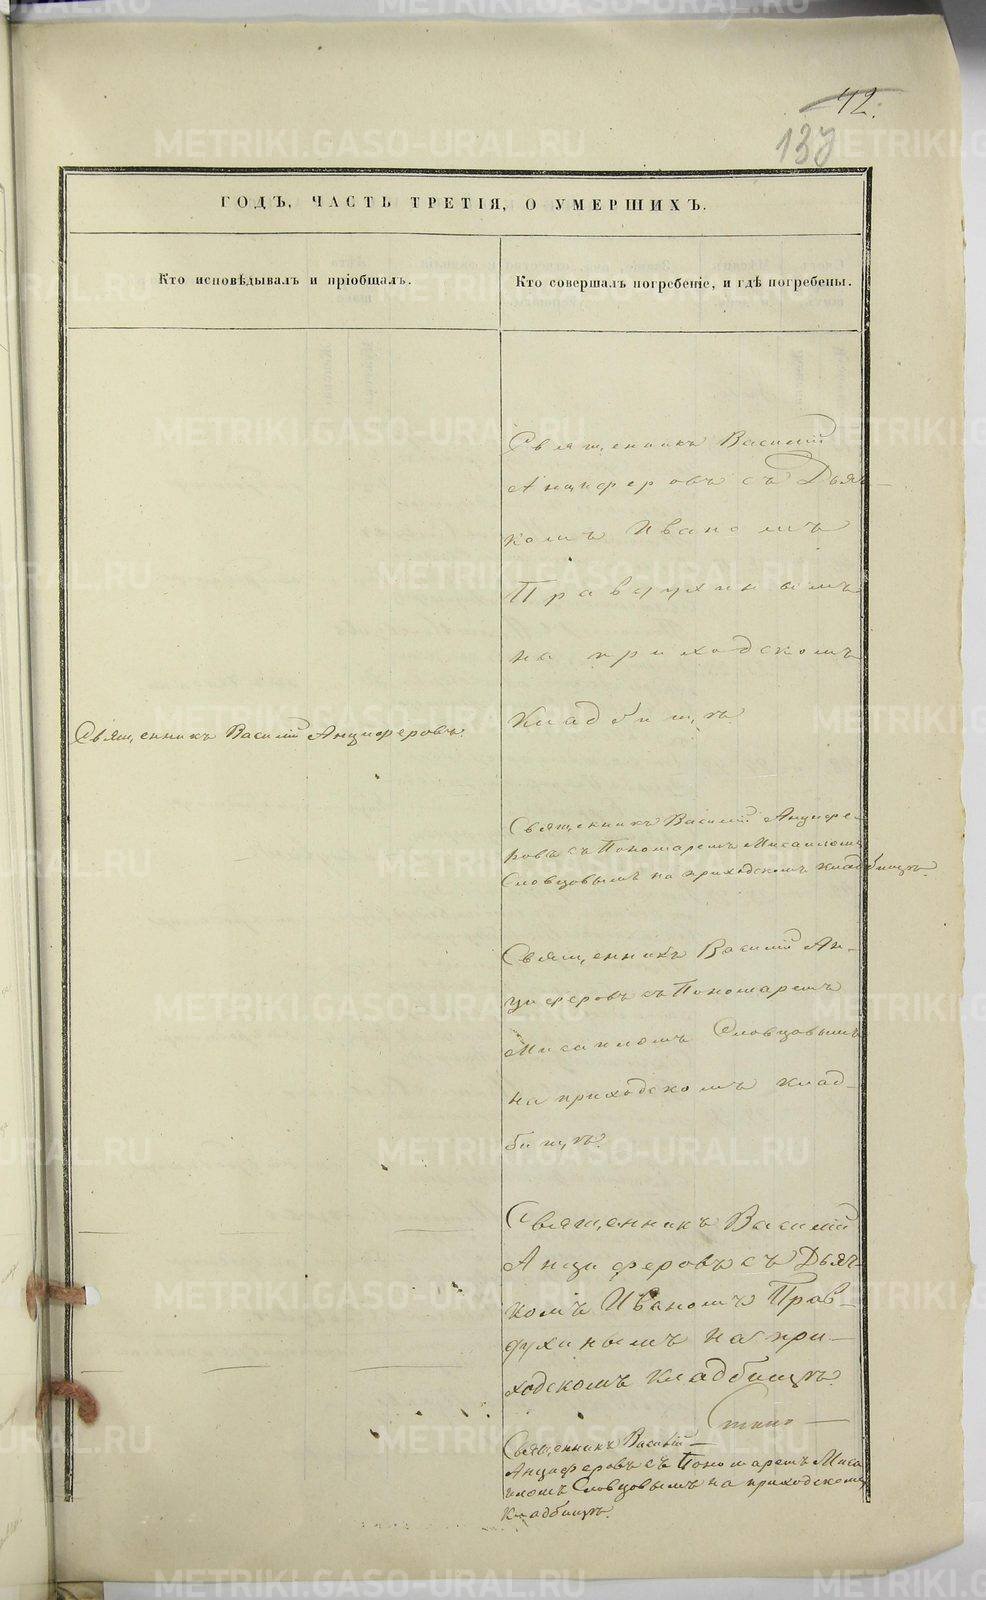 42.
137
ГОДЪ, ЧАСТЬ ТРЕТІЯ, О УМЕРШИХЪ.
Кто исповѣдывалъ и пріобщалъ.
Кто совершалъ погребеніе, и гдѣ погребены.
Священникъ Василій
Анциферовъ съ Дьяч-
комъ Иваномъ
Правдухинымъ
на приходскомъ
Кладбищѣ.
Священникъ Василій Анциферовъ.
Священникъ Василій Анцифе-
ровъ съ Пономаремъ Мисаиломъ
Словцовымъ на приходскомъ кладбищѣ.
Священникъ Василій Ан-
циферовъ съ Пономаремъ
Мисаиломъ Словцовымъ
на приходскомъ клад-
бищѣ.
Священникъ Василій
Анциферовъ съ Дьяч-
комъ Иваномъ Прав-
духинымъ на при-
ходскомъ кладбищѣ.
Священникъ Василій
Анциферовъ съ Пономаремъ Миса
иломъ Словцовымъ на приходскомъ
Кладбищѣ.
METRIKI.GASO-URAL.RU